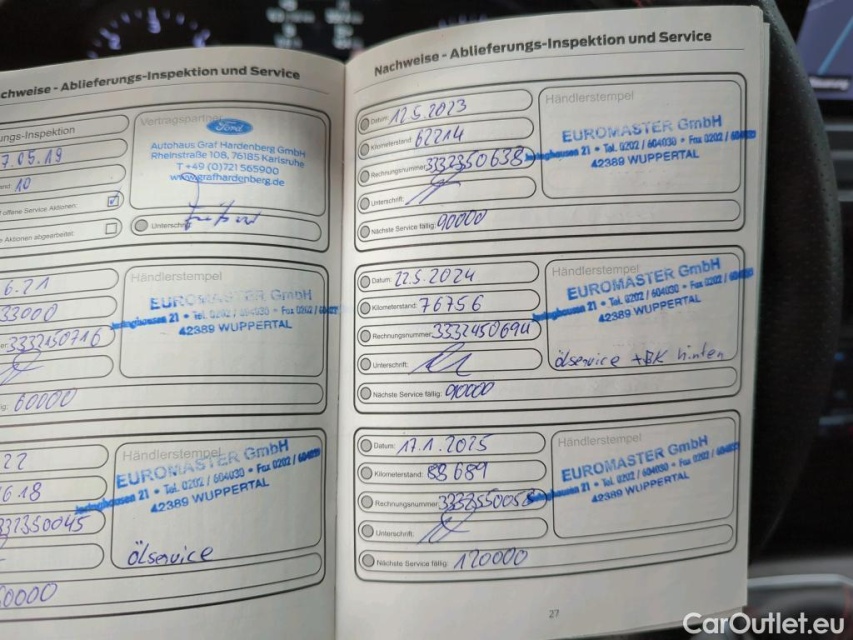 Nachweise - Ablieferungs-Inspektion und Service
ungs-Inspektion
7.05.19
10
offene Service Aktionen:
Aktionen abgearbeitet:
Vertragspartner
Ford
Autohaus Graf Hardenberg GmbH
Rheinstraße 108, 76185 Karlsruhe
T +49 (0)721 565900
www.grafhardenberg.de
Unterschrift
6.21
33000
3332150716
60000
Händlerstempel
EUROMASTER GmbH
21 • Tel. 0202 / 604030 • Fax 0202 /
42389 WUPPERTAL
22
618
Händlerstempel
EUROMASTER GmbH
21 • Tel. 0202 / 604030 • Fax 0202 /
42389 WUPPERTAL
Ölservice
Nachweise - Ablieferungs-Inspektion und Service
Datum: 12.5.2023
Kilometerstand: 62214
Rechnungsnummer: 3332350638
Unterschrift:
Nächste Service fällig: 90000
Händlerstempel
EUROMASTER GmbH
21 • Tel. 0202 / 604030 • Fax 0202 /
42389 WUPPERTAL
Datum: 22.5.2024
Kilometerstand: 76756
Rechnungsnummer: 3332450694
Unterschrift:
Nächste Service fällig: 90000
Händlerstempel
EUROMASTER GmbH
21 • Tel. 0202 / 604030 • Fax 0202 /
42389 WUPPERTAL
Ölservice + BK hinten
Datum: 17.1.2025
Kilometerstand: 88689
Rechnungsnummer:
Unterschrift:
Nächste Service fällig: 120000
Händlerstempel
EUROMASTER GmbH
21 • Tel. 0202 / 604030 • Fax 0202 /
42389 WUPPERTAL
27
CarOutlet.eu